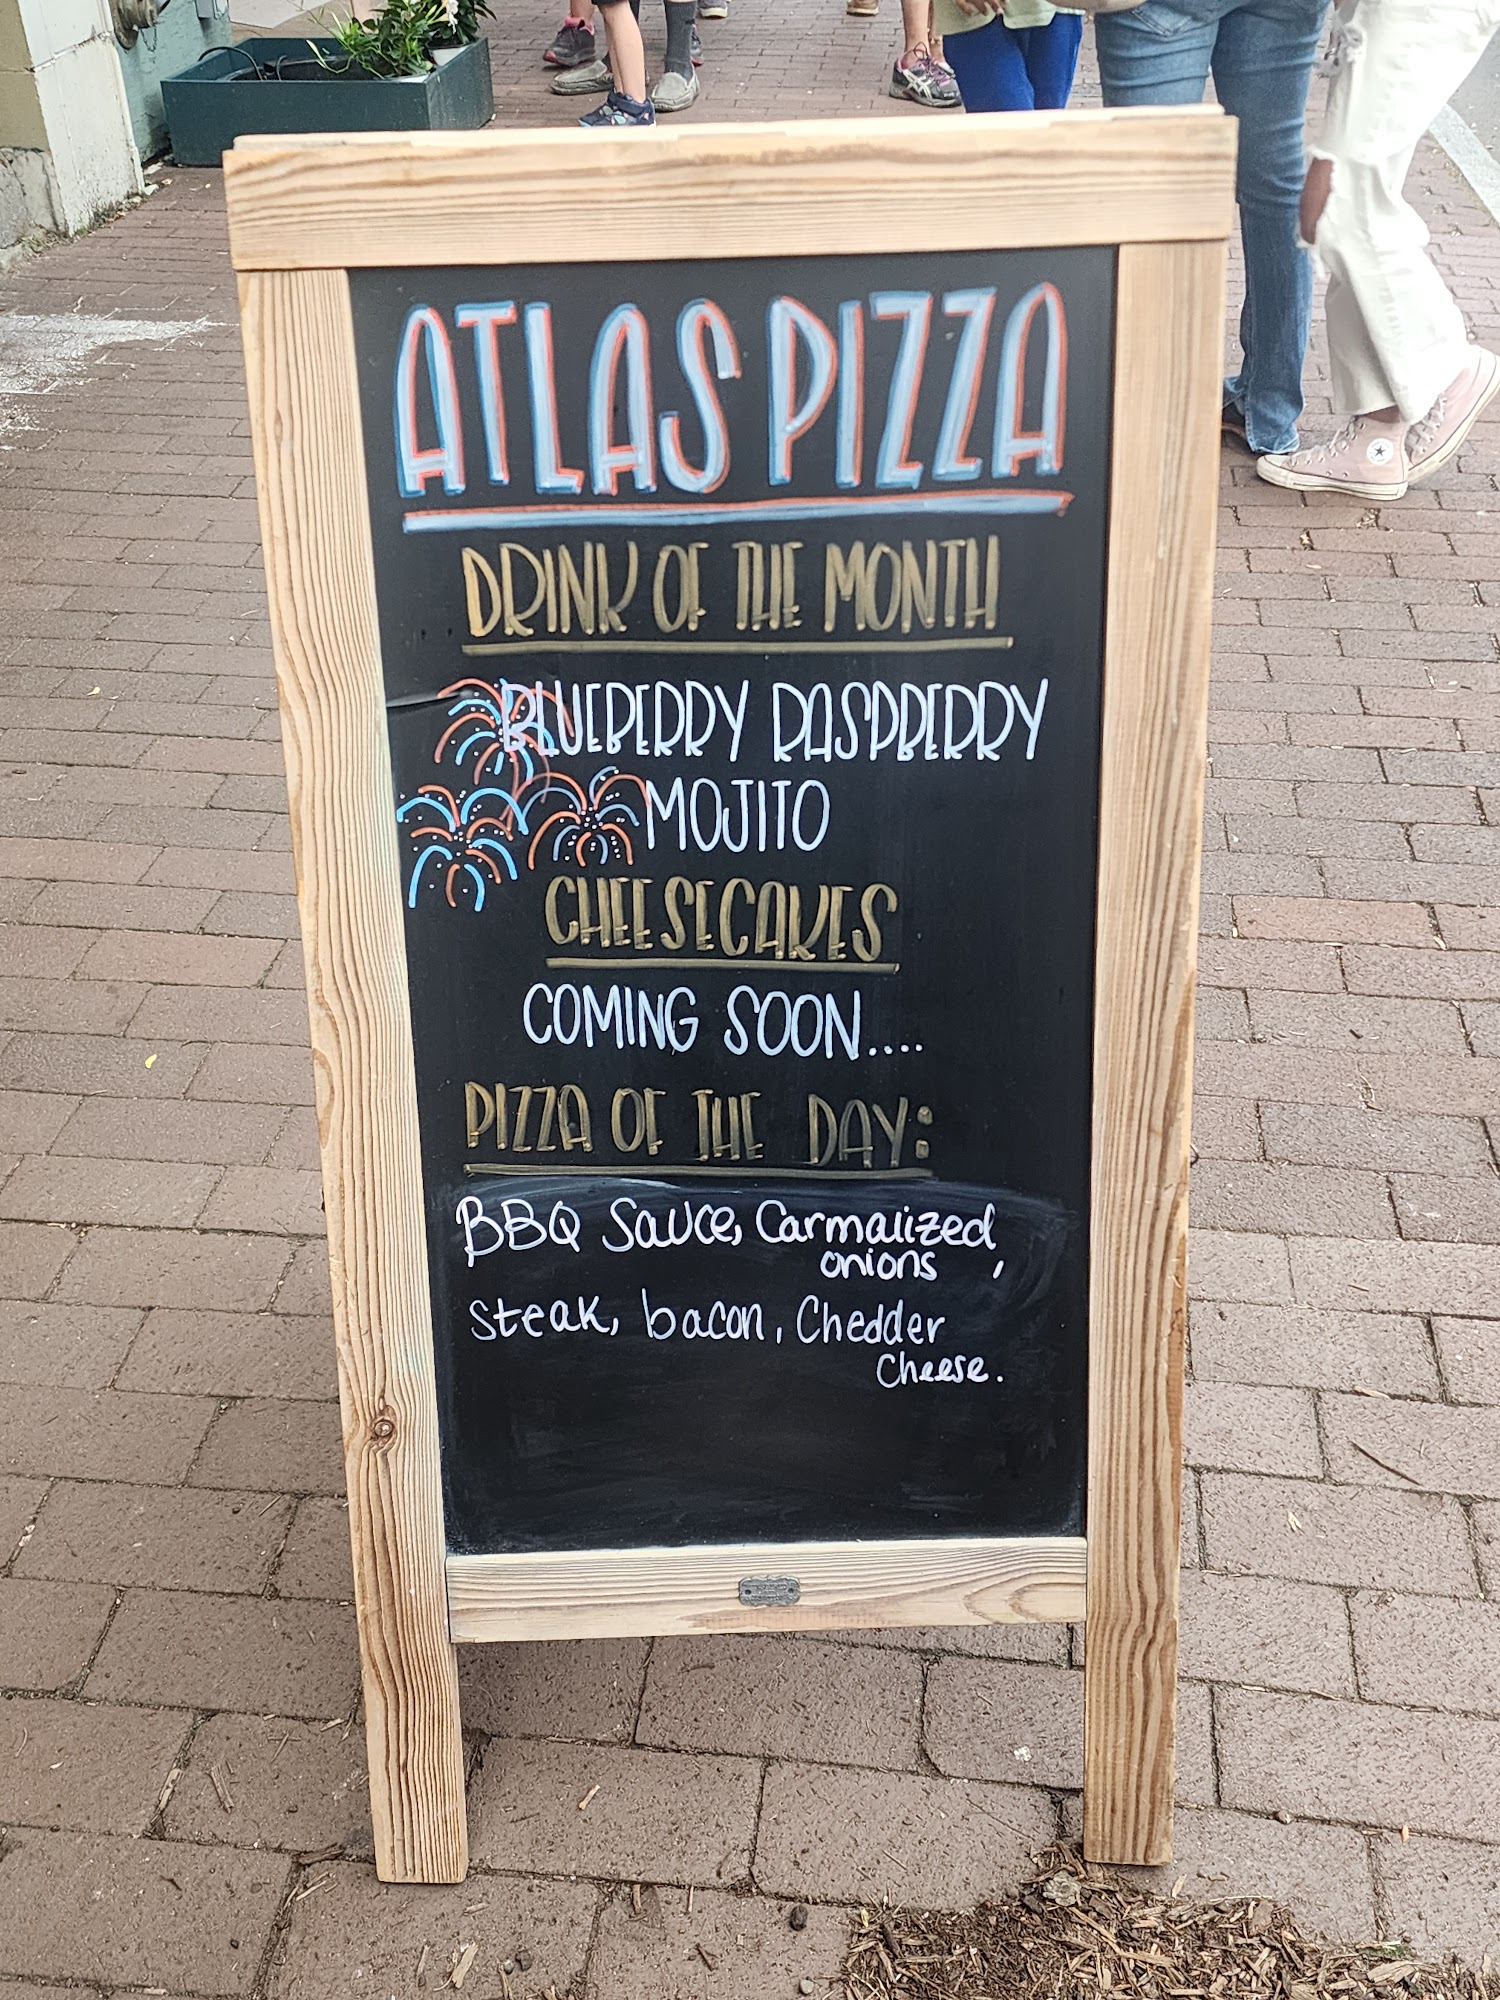 ATLAS PIZZA
DRINK OF THE MONTH
BLUEBERRY RASPBERRY
MOJITO
CHEESECAKES
COMING SOON....
PIZZA OF THE DAY:
BBQ Sauce, Carmalized
onions ,
Steak, bacon, Chedder
Cheese.